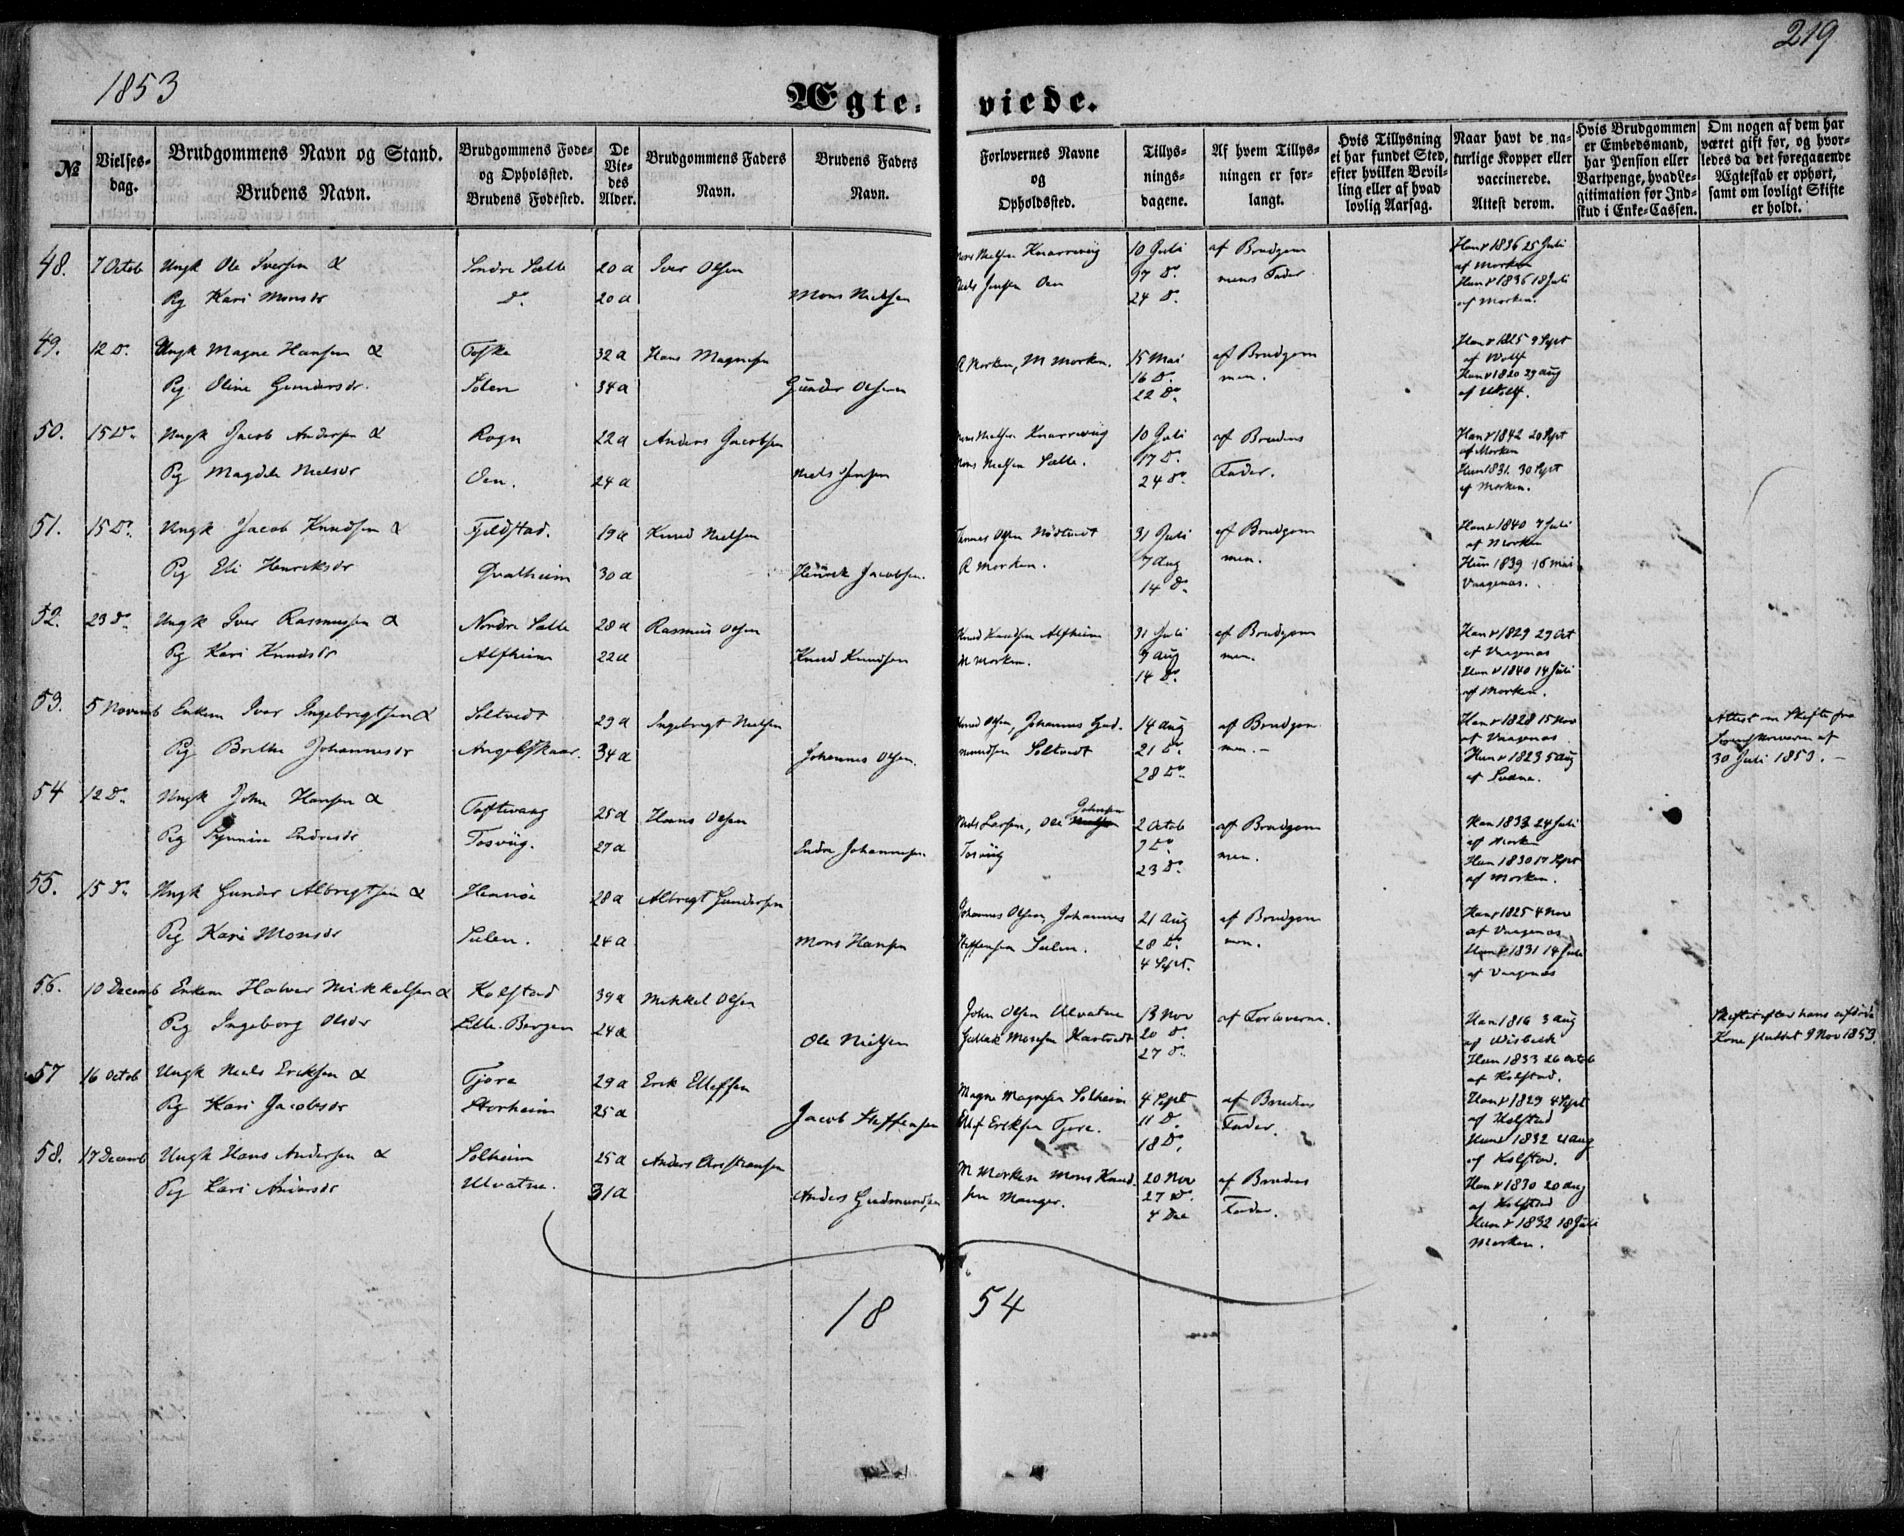 1853
219
Ægte-viede.
№
Vielses-dag.
Brudgommens Navn og Stand.
Brudens Navn.
Brudgommens Føde- og Opholdsted.
Brudens Fødested.
De Viedes Alder.
Brudgommens Faders Navn.
Brudens Faders Navn.
Forlovernes Navne og Opholdsted.
Tillysningsdagene.
Af hvem Tillysningen er forlangt.
Hvis Tillysning ei har fundet Sted, efter hvilken Bevilling eller af hvad lovlig Aarsag.
Naar havt de naturlige Kopper eller vaccinerede. Attest derom.
Hvis Brudgommen er Embedsmand, har Pension eller Vartpenge, hvad Legitimation for Indskud i Enke-Cassen.
Om nogen af dem har været gift før, og hvorledes da det foregaaende Ægteskab er ophørt, samt om lovligt Skifte er holdt.
48. 7 Octob Ungk Ole Iversen & Søndre Sætte 20 a Iver Olsen Niels Knarrevig 10 Juli af Brudgom Han v 1836 25 Juli
af Morken
Pig Kari Monsdr D. 20 a Mons Nielsen Niels Jensen Oen 17 D. mens Fader Hun v 1836 18 Juli
24 D. af Morken.
49. 12 D. Ungk Magne Hansen & Toska 32 a Hans Magnesen R Morken, M Morken. 15 Mai af Brudgom Han v 1825 9 Sept
af Wolf
Pig Oline Gundersdr. Solen 34 a Gunder Olsen 16 D. men. Hun v 1820 29 aug
22 D. af Wolf.
50. 15 D. Ungk Jacob Andersen & Rogn 22 a Anders Jacobsen Mons Nielsen Knarrevig 10 Juli af Brudens Han v 1842 20 Sept
af Morken
Pig Magdele Nielsdr Oen. 24 a Niels Jensen Mons Nielsen Sætte. 17 D. Fader. Hun 1831. 30 Sept
24 D. af Morken.
51. 15 D. Ungk Jacob Knudsen & Fjeldstad. 19 a Knud Nielsen Tennes Olsen Nødtvedt 31 Juli af Brudgom Han v 1840 7 Juli
af Morken
Pig Eli Henriksdr Qvalheim 30 a Henrik Jacobsen. R Morken. 7 aug men. Hun 1839 16 mai
14 D. Vaagenas.
52. 23 D. Ungk Iver Rasmussen & Nordre Sætte 28 a Rasmus Olsen Knud Knudsen Alfheim 31 Juli af Brudgom Han v 1829 29 Oct
af Vaagenas
Pig Kari Knudsdr Alfheim 22 a Knud Knudsen M Morken. 9 aug men. Hun v 1840 14 Juli
14 D. af Morken.
53. 5 Novemb Enkem Iver Ingebrigtsen & Soltvedt 29 a Ingebrigt Nielsen Knud Olsen, Johannes Gud- 14 aug af Brudgom Han v 1828 15 Nov Attest om Skifte fra
af Vaagenas
Pig Brithe Johannesdr Angelskaar. 34 a Johannes Olsen. mundsen Soltvedt 21 D. men. Hun v 1823 5 aug
28 D. af 30 Juli 1853.
54 12 D. Ungk John Hansen & Toftevaag 25 a Hans Olsen Niels Larsen, Ole Johnsen 2 Octob af Brudgom Han 1833 24 Juli
af Morken
Pig Endresdr Tosvüg. 27 a Endre Johannesen. Tosvüg 9 D. men. Hun 1830 17 Sept
23 D. af Morken.
55. 15 D. Ungk Gunder Albregtsen & Hennøe 28 a Albregt Gundersen Johannes Olsen, Johannes 21 Aug af Brudgom Han v 1825 4 Nov
af Vaagenas
Pig Kari Monsdr Sulen. 24 a Mons Hansen Steffensen Sulen. 28 D. men. Hun v 1831 14 Juli
4 Sept. af Vaagenas
56. 10 Decemb Enkem Halver Mikkelsen & Kolstad 39 a Mikkel Olsen John Olsen Ulvatne 13 Nov af Forloverne. Han 1816 3 aug Skiftet efter hans afdøde
af Wisbeck
Pig Ingeborg Olsdr Lille-Bergen 24 a Ole Nielsen Gullak Monsen Hartvedt 20 D. Hun 1833 26 Octob Kone sluttet 9 Nov 1853
27 D. af Kolstad.
57 16 Octob Ungk Niels Eriksen & Fjore 29 a Erik Ellefsen Magne Magnesen Solheim 4 Sept af Brudens Han v 1829 4 Sept
af Kolstad
Pig Kari Jacobsdr Storheim 25 a Jacob Steffensen Ellef Eriksen Fjore. 11 D. Fader. Hun v 1832 4 aug
18 D. af Kolstad.
58. 17 Decemb Ungk Hans Andersen & Solheim 25 a Anders Christiansen M Morken Mons Knud- 20 Nov af Brudens Han v 1830 20 aug
af Kolstad
Pig Kari Andersdr Ulvatne. 31 a Anders Gudmundsen sen Manger. 27 D. Fader. Hun v 1832 18 Juli
4 Dec Morken.
18 54